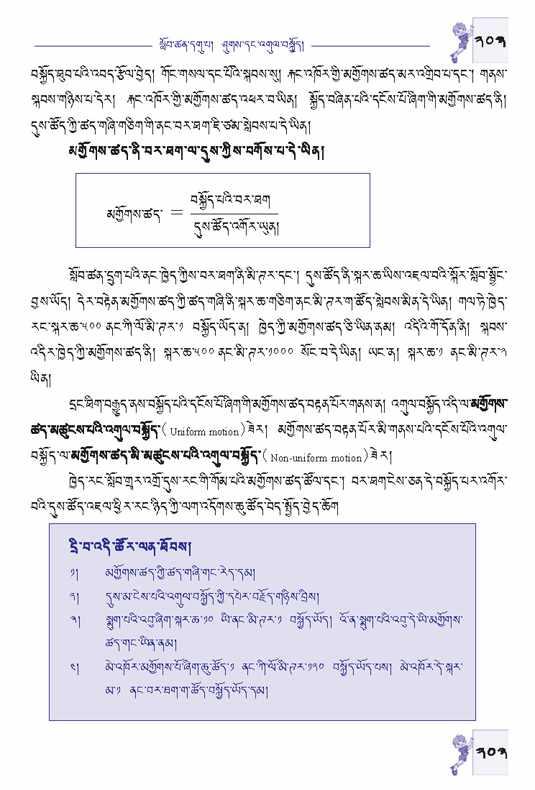 སློབ་ཚན་དགུ་པ། ཤུགས་དང་འགུལ་བསྐྱོད།
༢༠༣
བསྐྱོད་ཐུབ་པའི་འབད་རྩོལ་བྱེད། གོང་གསལ་དང་པོའི་སྐབས་སུ། རྐང་འཁོར་གྱི་མགྱོགས་ཚད་མར་འགྲིབ་པ་དང་། གནས་
སྐབས་གཉིས་པ་དེར། རྐང་འཁོར་གྱི་མགྱོགས་ཚད་འཕར་བ་ཡིན། སྐྱོད་བཞིན་པའི་དངོས་པོ་ཞིག་གི་མགྱོགས་ཚད་ནི།
དུས་ཚོད་ཀྱི་ཚད་གཞི་གཅིག་གི་ནང་བར་ཐག་ཇི་ཙམ་སླེབས་པ་དེ་ཡིན།
མགྱོགས་ཚད་ནི་བར་ཐག་ལ་དུས་ཀྱིས་བགོས་པ་དེ་ཡིན།
མགྱོགས་ཚད་ = བསྐྱོད་པའི་བར་ཐག
དུས་ཚོད་འགོར་ཡུན།
སློབ་ཚན་དྲུག་པའི་ནང་ཁྱེད་ཀྱིས་བར་ཐག་ནི་མི་ཊར་དང་། དུས་ཚོད་ནི་སྐར་ཆ་ཡིས་འཇལ་བའི་སྐོར་སློབ་སྦྱོང་
བྱས་ཡོད། དེར་བརྟེན་མགྱོགས་ཚད་ཀྱི་ཚད་གཞི་ནི་སྐར་ཆ་གཅིག་ནང་མི་ཊར་ག་ཚོད་སླེབས་མིན་དེ་ཡིན། གལ་ཏེ་ཁྱེད་
རང་སྐར་ཆ་༥༠༠ ནང་ཀི་ལོ་མི་ཊར་༡ བསྐྱོད་ཡོད་ན། ཁྱེད་ཀྱི་མགྱོགས་ཚད་ཅི་ཡིན་ནམ། འདིའི་གོ་དོན་ནི། སྐབས་
འདིར་ཁྱེད་ཀྱི་མགྱོགས་ཚད་ནི། སྐར་ཆ་༥༠༠ ནང་མི་ཊར་༡༠༠༠ སོང་བ་དེ་ཡིན། ཡང་ན། སྐར་ཆ་༡ ནང་མི་ཊར་༢
ཡིན།
དྲང་ཐིག་བརྒྱུད་ནས་བསྐྱོད་པའི་དངོས་པོ་ཞིག་གི་མགྱོགས་ཚད་བརྟན་པོར་གནས་ན། འགུལ་བསྐྱོད་འདི་ལ་མགྱོགས་
ཚད་མཚུངས་པའི་འགུལ་བསྐྱོད་(Uniform motion)ཟེར། མགྱོགས་ཚད་བརྟན་པོར་མི་གནས་པའི་དངོས་པོའི་འགུལ་
བསྐྱོད་ལ་མགྱོགས་ཚད་མི་མཚུངས་པའི་འགུལ་བསྐྱོད་(Non-uniform motion)ཟེར།
ཁྱེད་རང་སློབ་གྲྭར་འགྲོ་དུས་རང་གི་གོམ་པའི་མགྱོགས་ཚད་ཚོལ་དང་། བར་ཐག་ངེས་ཅན་དེ་བསྐྱོད་པར་འགོར་
བའི་དུས་ཚོད་འཇལ་ཕྱིར་རང་ཉིད་ཀྱི་ལག་འདོགས་ཆུ་ཚོད་བེད་སྤྱོད་བྱེད་ཆོག
དྲི་བ་འདི་ཚོར་ལན་ཐོབས།
༡། མགྱོགས་ཚད་ཀྱི་ཚད་གཞི་གང་རེད་དམ།
༢། དུས་མ་ངེས་པའི་འགུལ་བསྐྱོད་ཀྱི་དཔེར་བརྗོད་གཉིས་བྲིས།
༣། སྨུག་པའི་འབུ་ཞིག་སྐར་ཆ་༡༠ ཡི་ནང་མི་ཊར་༡ བསྐྱོད་ཡོད། འོ་ན་སྨུག་པའི་འབུ་དེ་ཡི་མགྱོགས་
ཚད་གང་ཡིན་ནམ།
༤། མེ་འཁོར་མགྱོགས་པོ་ཞིག་ཆུ་ཚོད་༡ ནང་ཀི་ལོ་མི་ཊར་༡༢༠ བསྐྱོད་ཡོད་པས། མེ་འཁོར་དེ་སྐར་
མ་༡ ནང་བར་ཐག་ག་ཚོད་བསྐྱོད་ཡོད་དམ།
༢༠༣